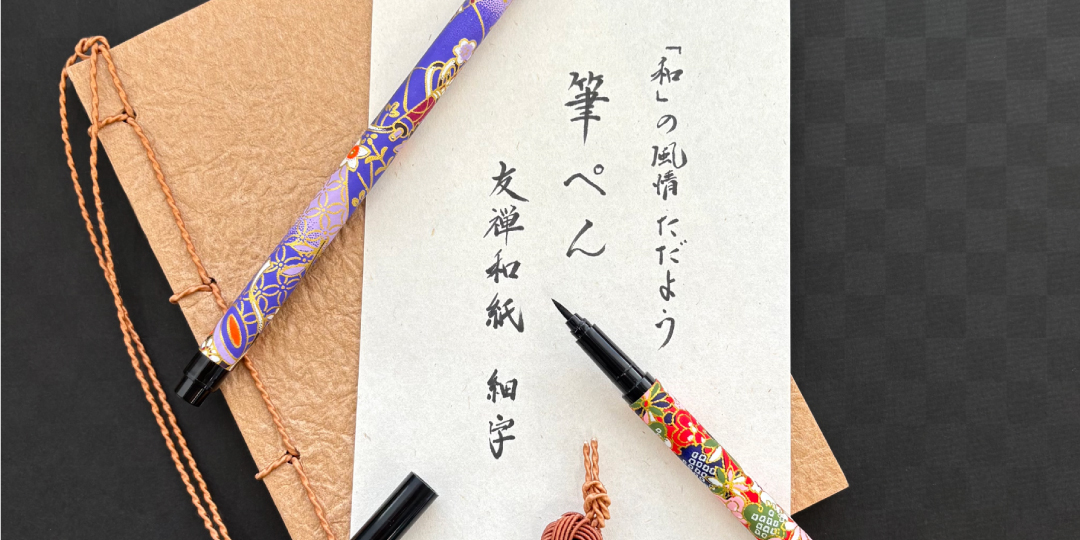 「和」の風情ただよう
筆ぺん
友禅和紙 細字